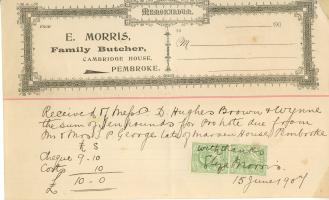 MEMORANDUM.
FROM
E. MORRIS,
Family Butcher,
CAMBRIDGE HOUSE,
PEMBROKE.
TO
M
190
Received of Messrs D. Hughes Brown & Wynne
the sum of Ten pounds for Probate due from
Mr & Mrs P George late of Marsen House, Pembroke
£ S
Cheque 9-10
Costs 10
£ 10-0
with thanks
Morris
15 June 1907